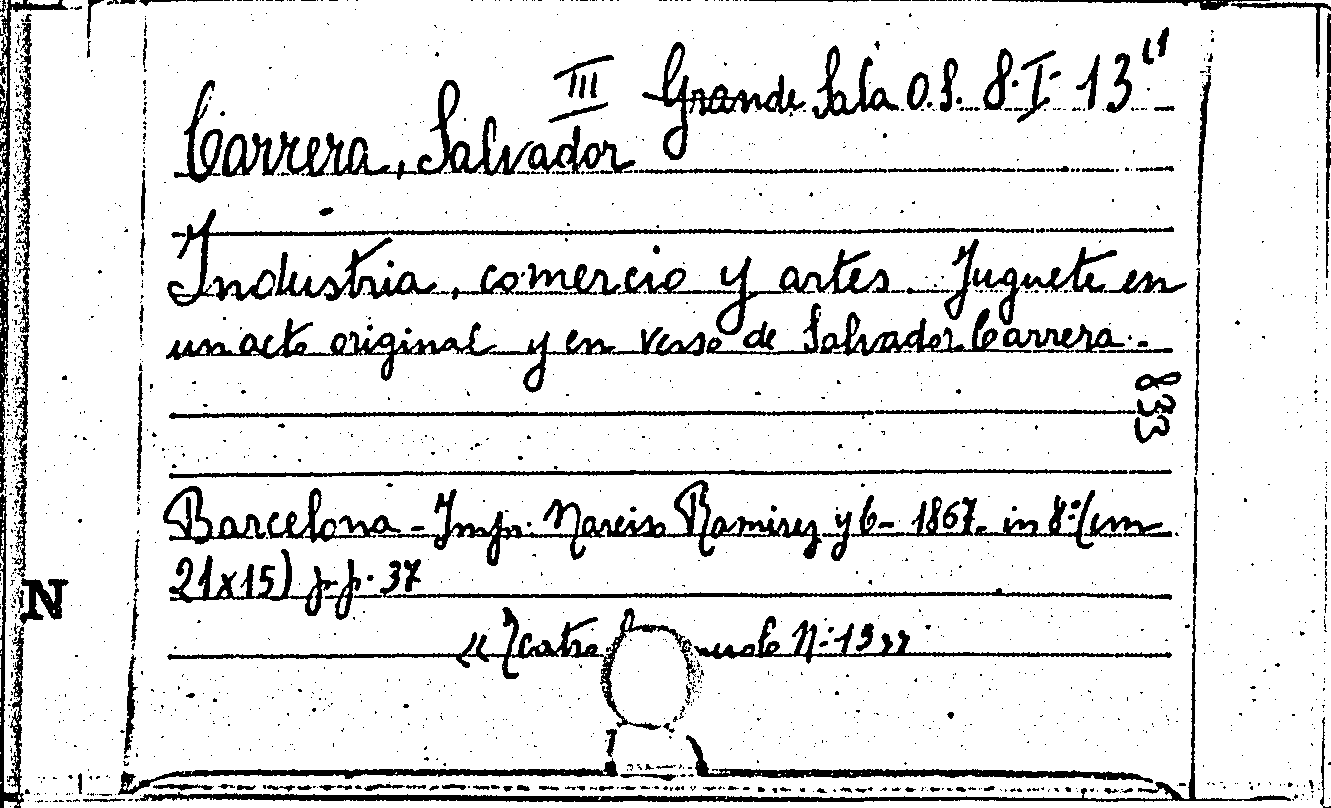 III Grande Sala O.S. 8·I·13"
Carrera, Salvador
Industria, comercio y artes. Juguete en
un acto original y en verso de Salvador Carrera.-
833
Barcelona - Impr. Narciso Ramirez y C- 1867- in 8:(cm
21x15) p.p. 37
N
«Teatro N: 13»